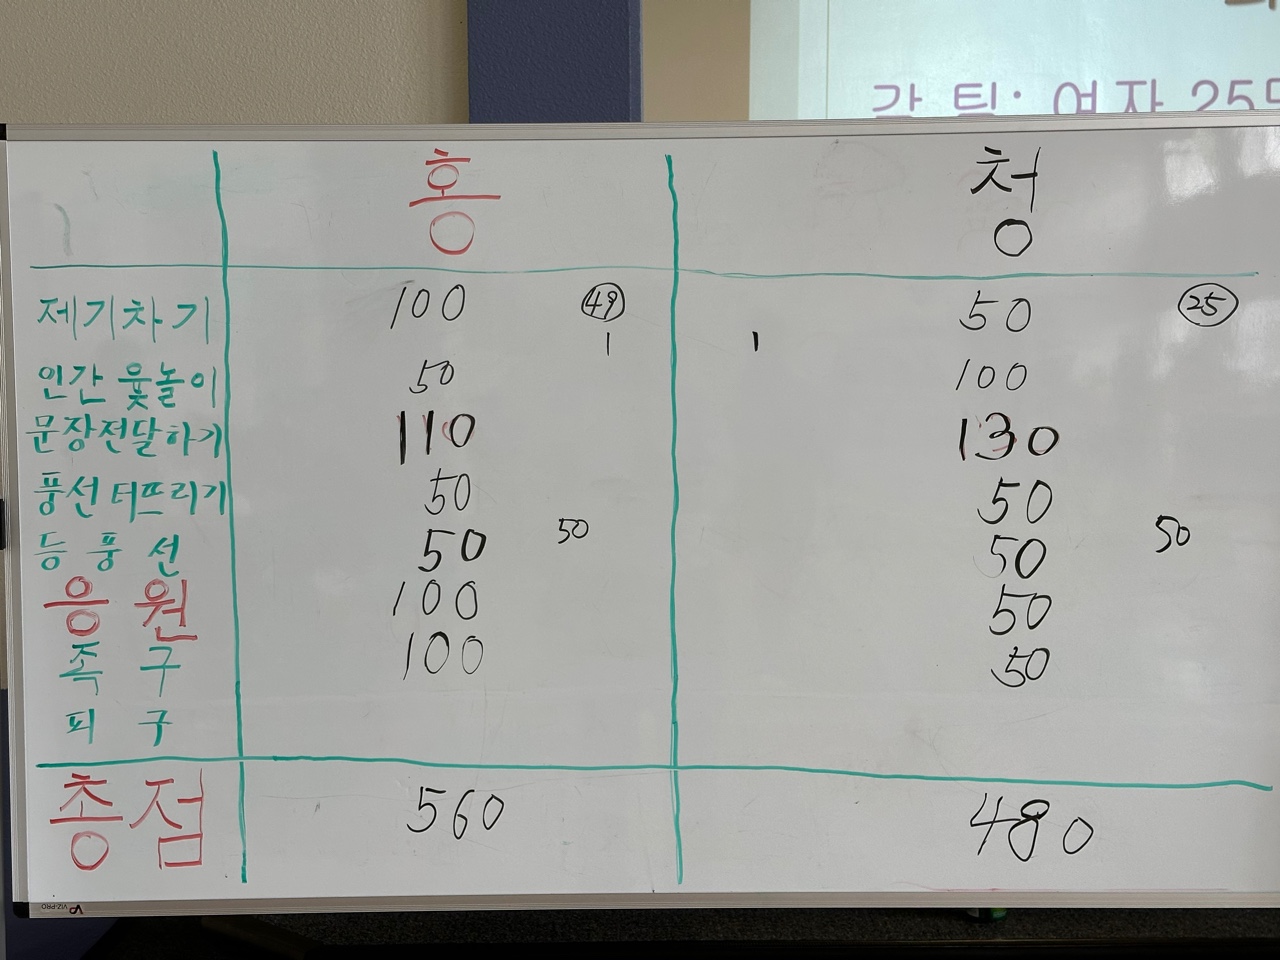 각 팀: 여자 25명
홍 청
제기차기 100 49 50 25
1 1
인간 윷놀이 50 100
문장전달하기 110 130
풍선 터뜨리기 50 50
등 풍 선 50 50 50 50
응 원 100 50
족 구 100 50
피 구
총점 560 480
VIZ-PRO